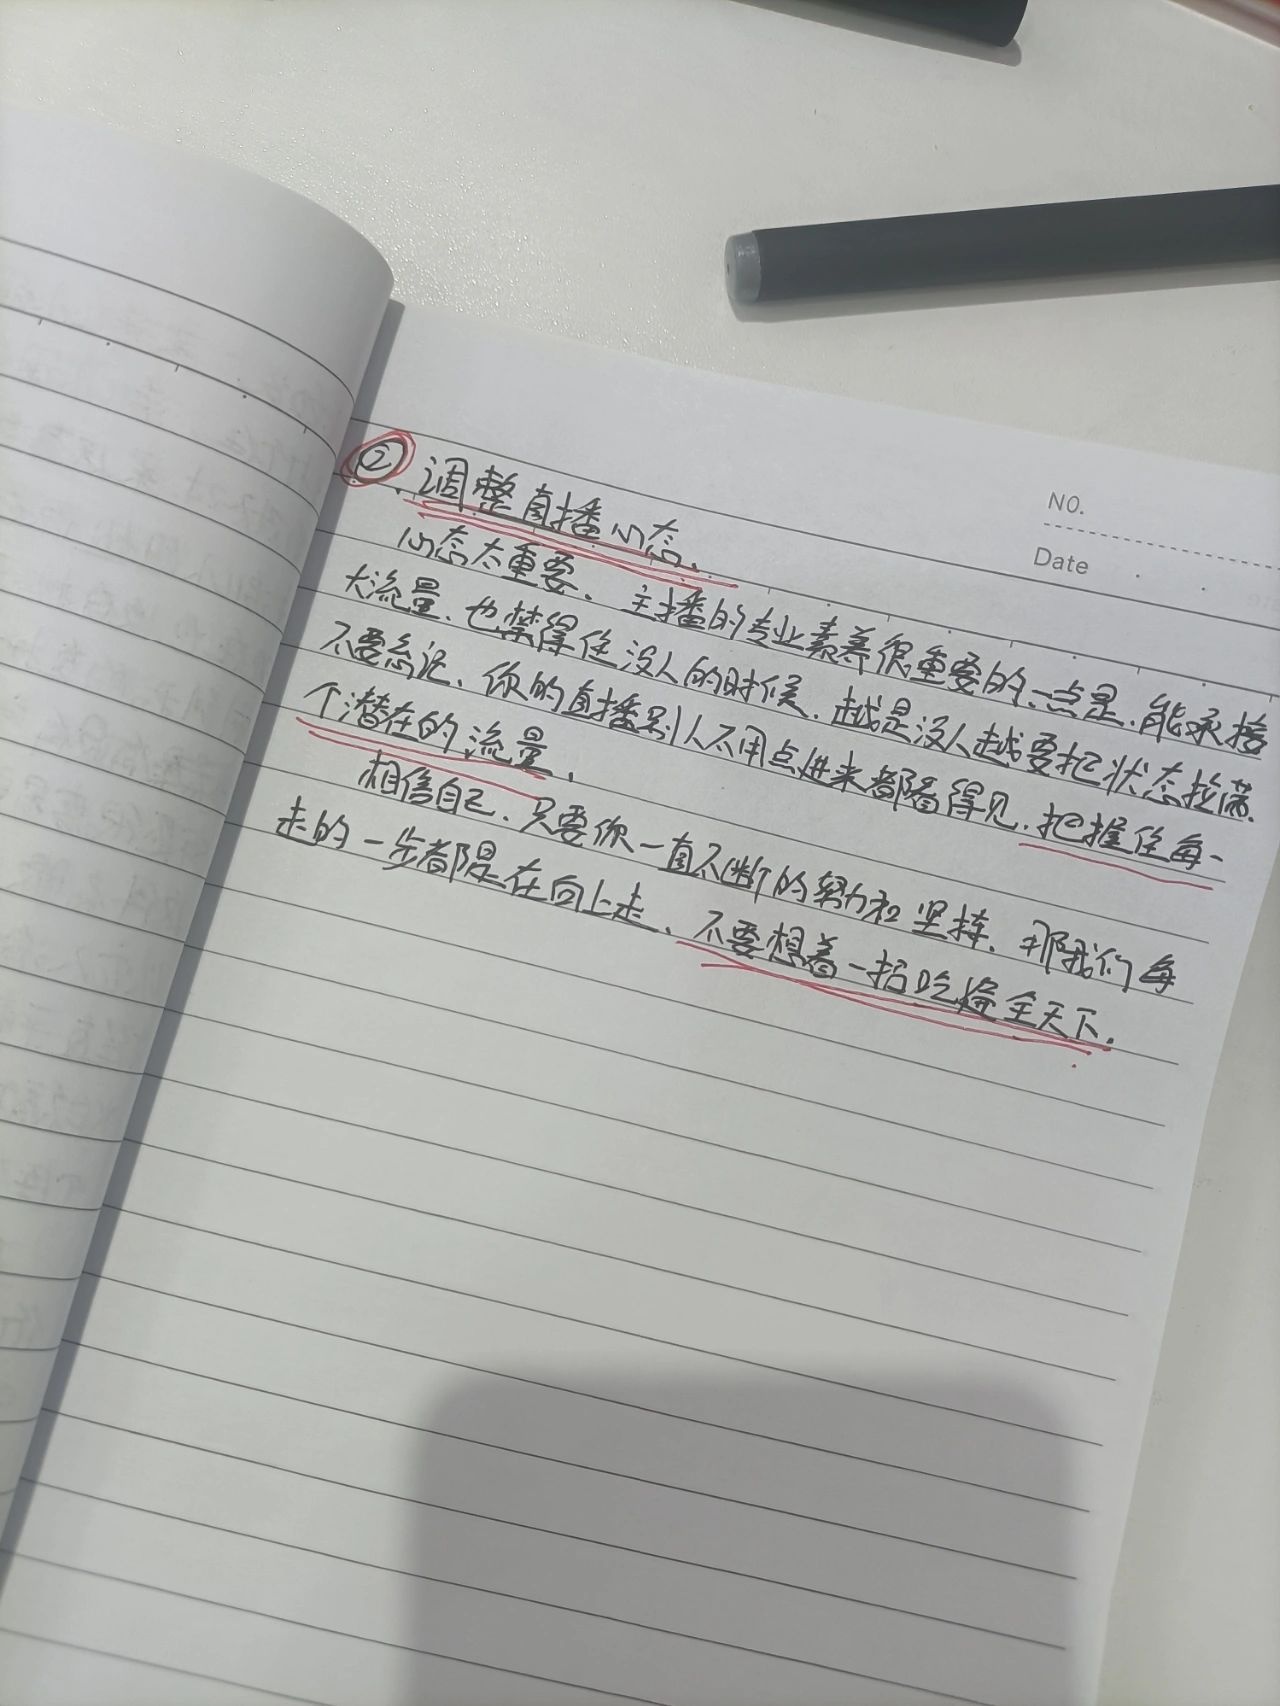 NO.
Date
② 调整直播心态、
心态太重要、主播的专业素养很重要的一点是、能承接
大流量、也禁得住没人的时候、越是没人越要把状态拉满、
不要忘记、你的直播别人不用点进来都看得见、把握住每一
个潜在的流量、
相信自己、只要你一直不断的努力和坚持、那我们每
走的一步都是在向上走、不要想着一招吃遍全天下、